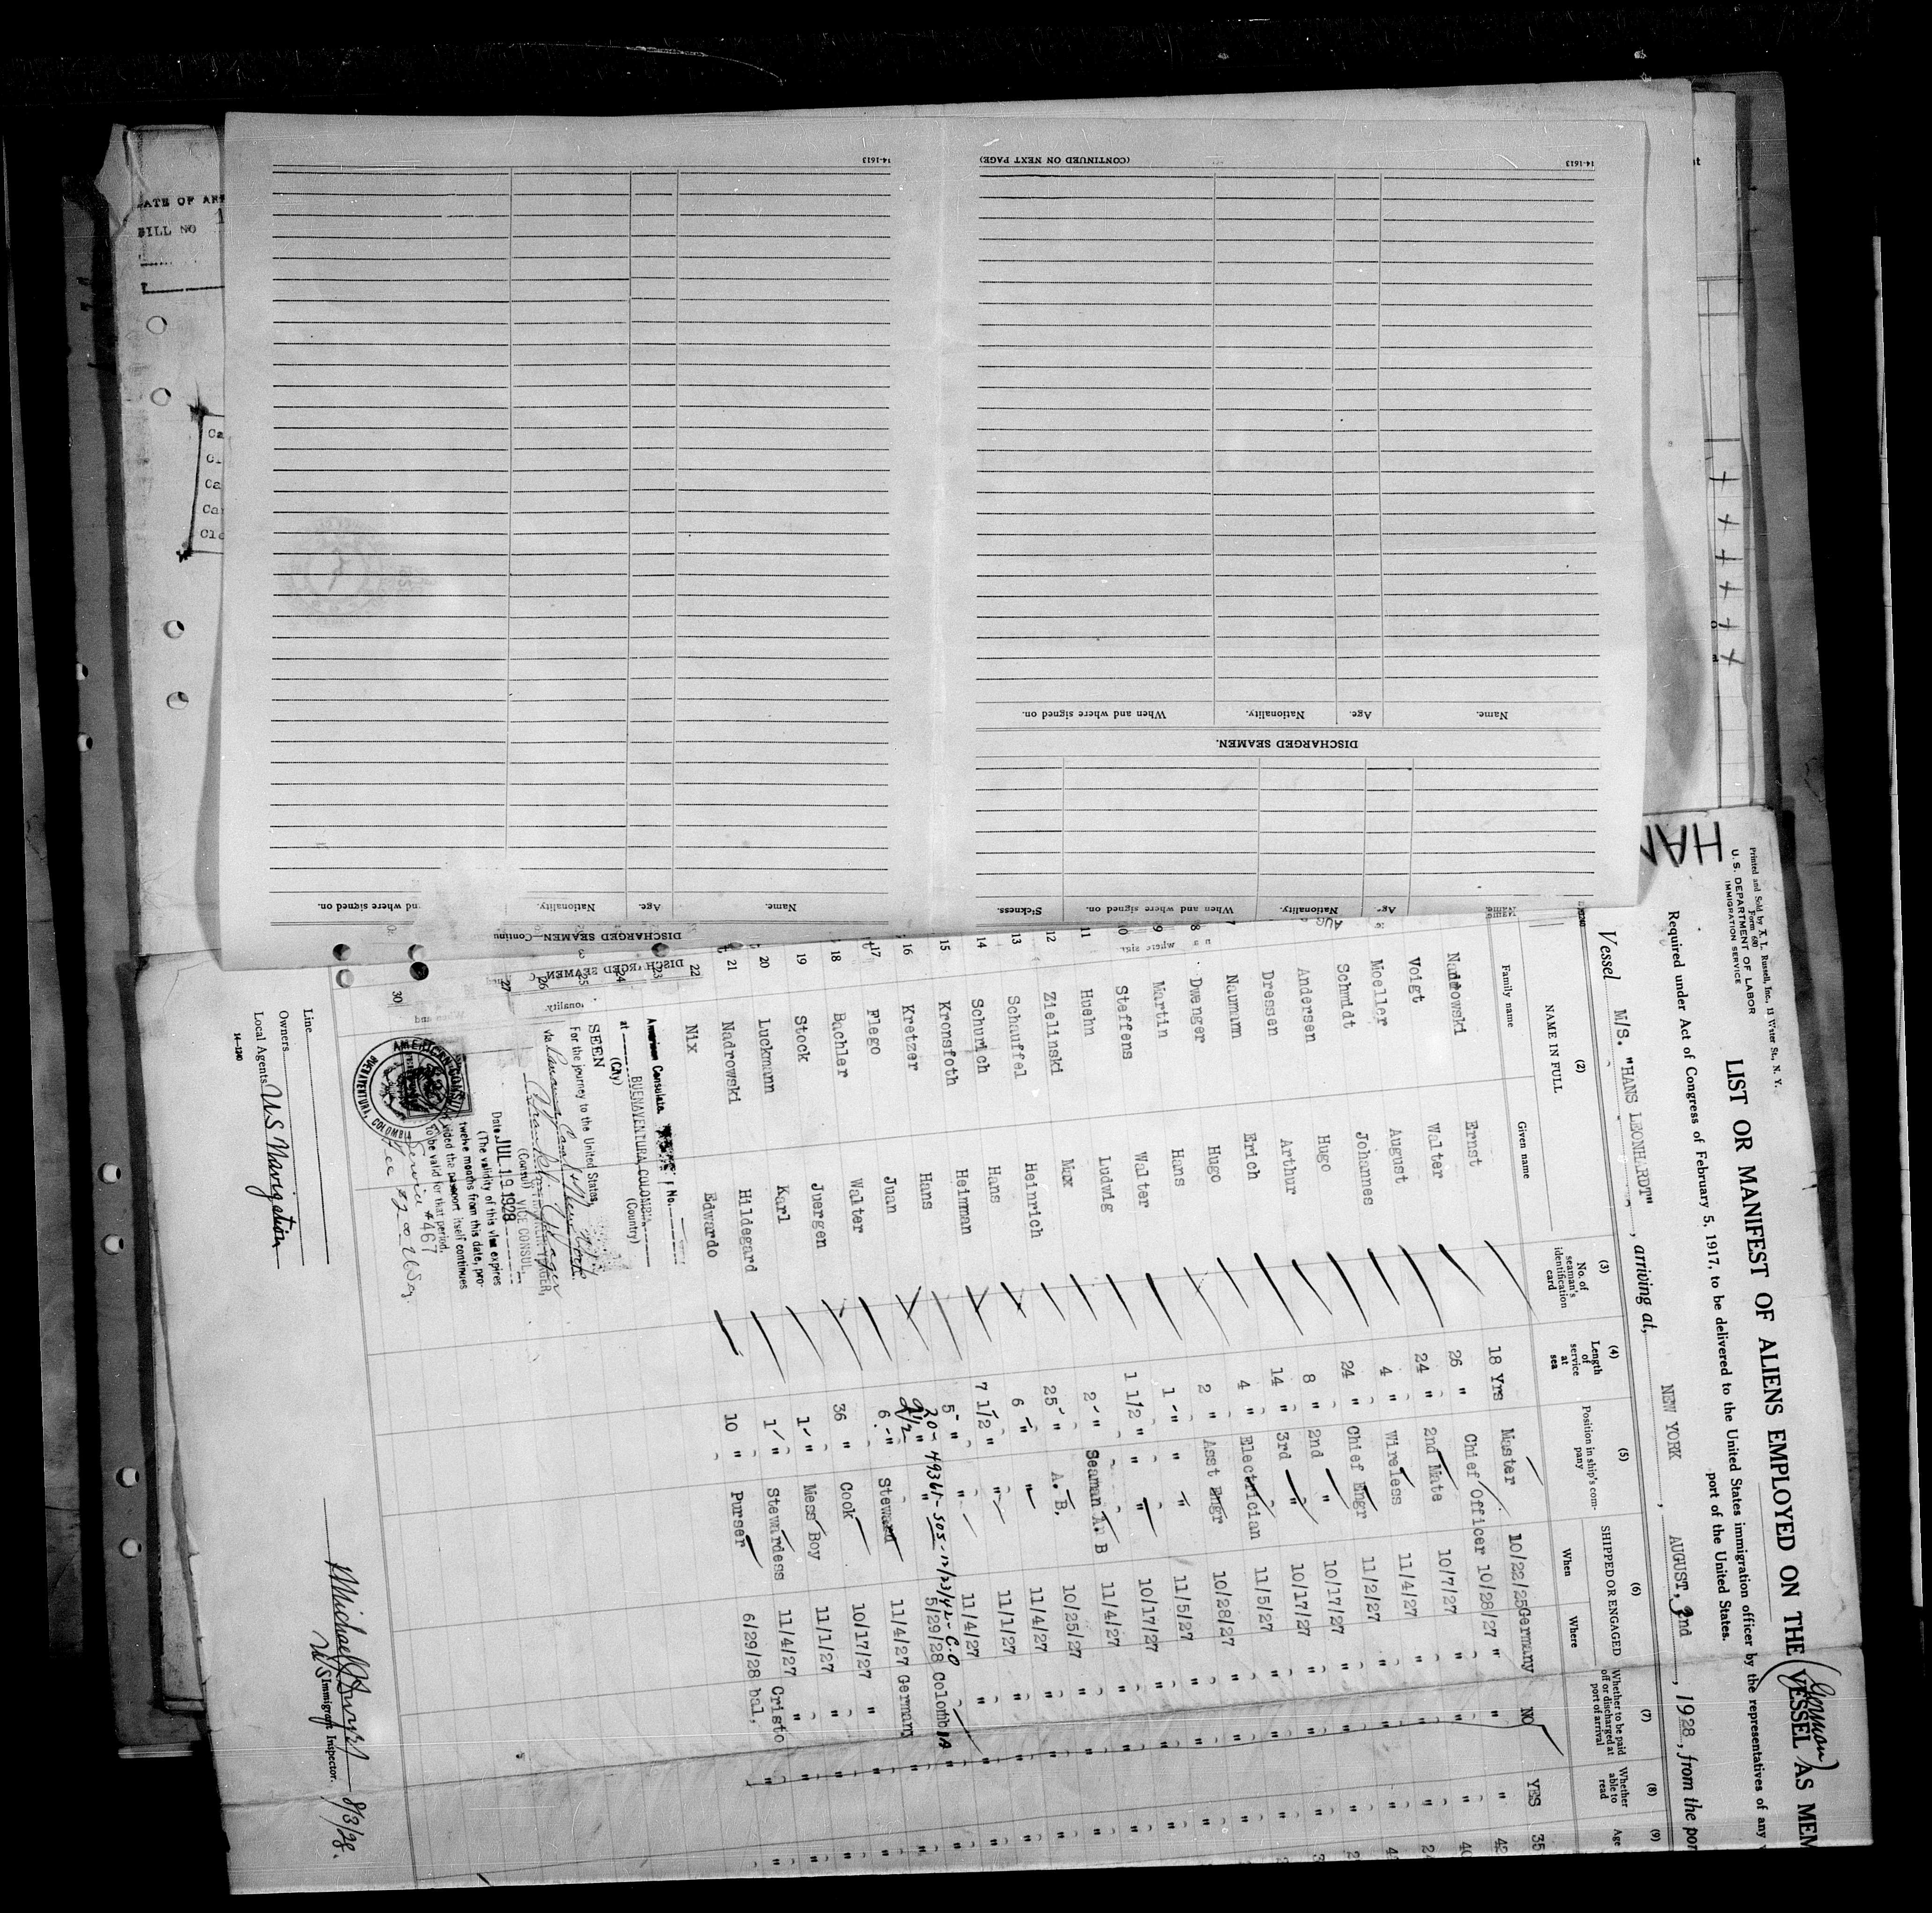 Printed and Sold by A. L. Russell, Inc., 11 Water St., N. Y.
Form 680
U. S. DEPARTMENT OF LABOR
IMMIGRATION SERVICE
HAN
(German)
LIST OR MANIFEST OF ALIENS EMPLOYED ON THE VESSEL AS MEM
Required under Act of Congress of February 5, 1917, to be delivered to the United States immigration officer by the representatives of any
port of the United States.
Vessel M/S. "HANS LEONHARDT", arriving at, NEW YORK, AUGUST, 3nd, 1928, from the por
(2) (3) (4) (5) (6) (7) (8) (9)
NAME IN FULL
Family name Given name
No. of seaman's identification card
Length of service at sea
Position in ship's company
SHIPPED OR ENGAGED
When Where
Whether to be paid off or discharged at port of arrival
Whether able to read
Age
Nadrowski Ernst 18 Yrs Master 10/22/25 Germany NO YES 35
Voigt Walter 26 " Chief Officer 10/28/27 " " " 42
Moeller August 24 " 2nd Mate 10/7/27 " " "
Schmidt Johannes 4 " Wireless 11/4/27 " " "
Andersen Hugo 24 " Chief Engr 11/2/27 " " "
Dressen Arthur 8 " 2nd " 10/17/27 " " "
Naumann Erich 14 " 3rd " 10/17/27 " " "
7
8 Dwenger Hugo 4 " Electrician 11/5/27 " " "
9 Martin Hans 2 " Asst Engr 10/28/27 " " "
10 Steffens Walter 1 " " 11/5/27 " " "
11 Huehn Ludwig 1 1/2 " " " 10/17/27 " " "
12 Zielinski Max 2 " Seaman A. B 11/4/27 " " "
13 Schauffel Heinrich 25 " A. B. 10/25/27 " " "
14 Schurich Hans 6 " " 11/4/27 " " "
15 Kronsfoth Heinman 7 1/2 " " 11/1/27 " " "
16 Kretzer Hans 5 " " 11/4/27 " " "
20 - 49361-505-12/23/42-C.O
17 Flego Juan 2 1/2 " " 5/29/28 Colombia " "
18 Bachler Walter 6 " Steward 11/4/27 Germany " "
19 Stock Juergen 36 " Cook 10/17/27 " " "
20 Luckmann Karl 1 " Mess Boy 11/1/27 " " "
21 Nadrowski Hildegard 1 " Stewardess 11/4/27 " " "
22 Nix Edwardo 10 " Purser 6/29/28 Cristo bal, " "
23
24
25
26
27
30
American Consulate
No.
at BUENAVENTURA COLOMBIA
(City) (Country)
SEEN
For the journey to the United States,
via Panama Canal & New York
(Consul) VICE CONSUL
Date JUL 19 1928
(The validity of this visa expires
twelve months from this date, pro-
vided the passport itself continues
to be valid for that period.
Service #467
AMERICAN CONSUL
BUENAVENTURA, COLOMBIA
Line
Owners
Local Agents U S Navigation
14—1240
8/3/28.
U S Immigrant Inspector.
14-1613
(CONTINUED ON NEXT PAGE)
14-1613
DISCHARGED SEAMEN.
Name. Age. Nationality. When and where signed on.
Name. Age. Nationality. When and where signed on. Sickness.
DISCHARGED SEAMEN—Continu
Name. Age. Nationality. nd where signed on.
DATE OF ARR
BILL NO 1
Ca
Cl
Ca
Car
Cle